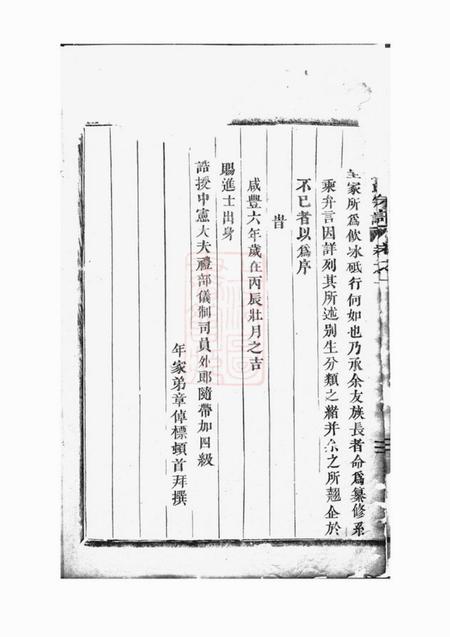 家所爲飲冰砥行何如也乃承余友族長者命爲纂修系
乘弁言因詳列其所述别生分類之緒并余之所翹企於
不已者以爲序
旹
咸豐六年歲在丙辰壯月之吉
賜進士出身
誥授中憲大夫禮部儀制司員外郎隨帶加四級
年家弟章倬標頓首拜撰